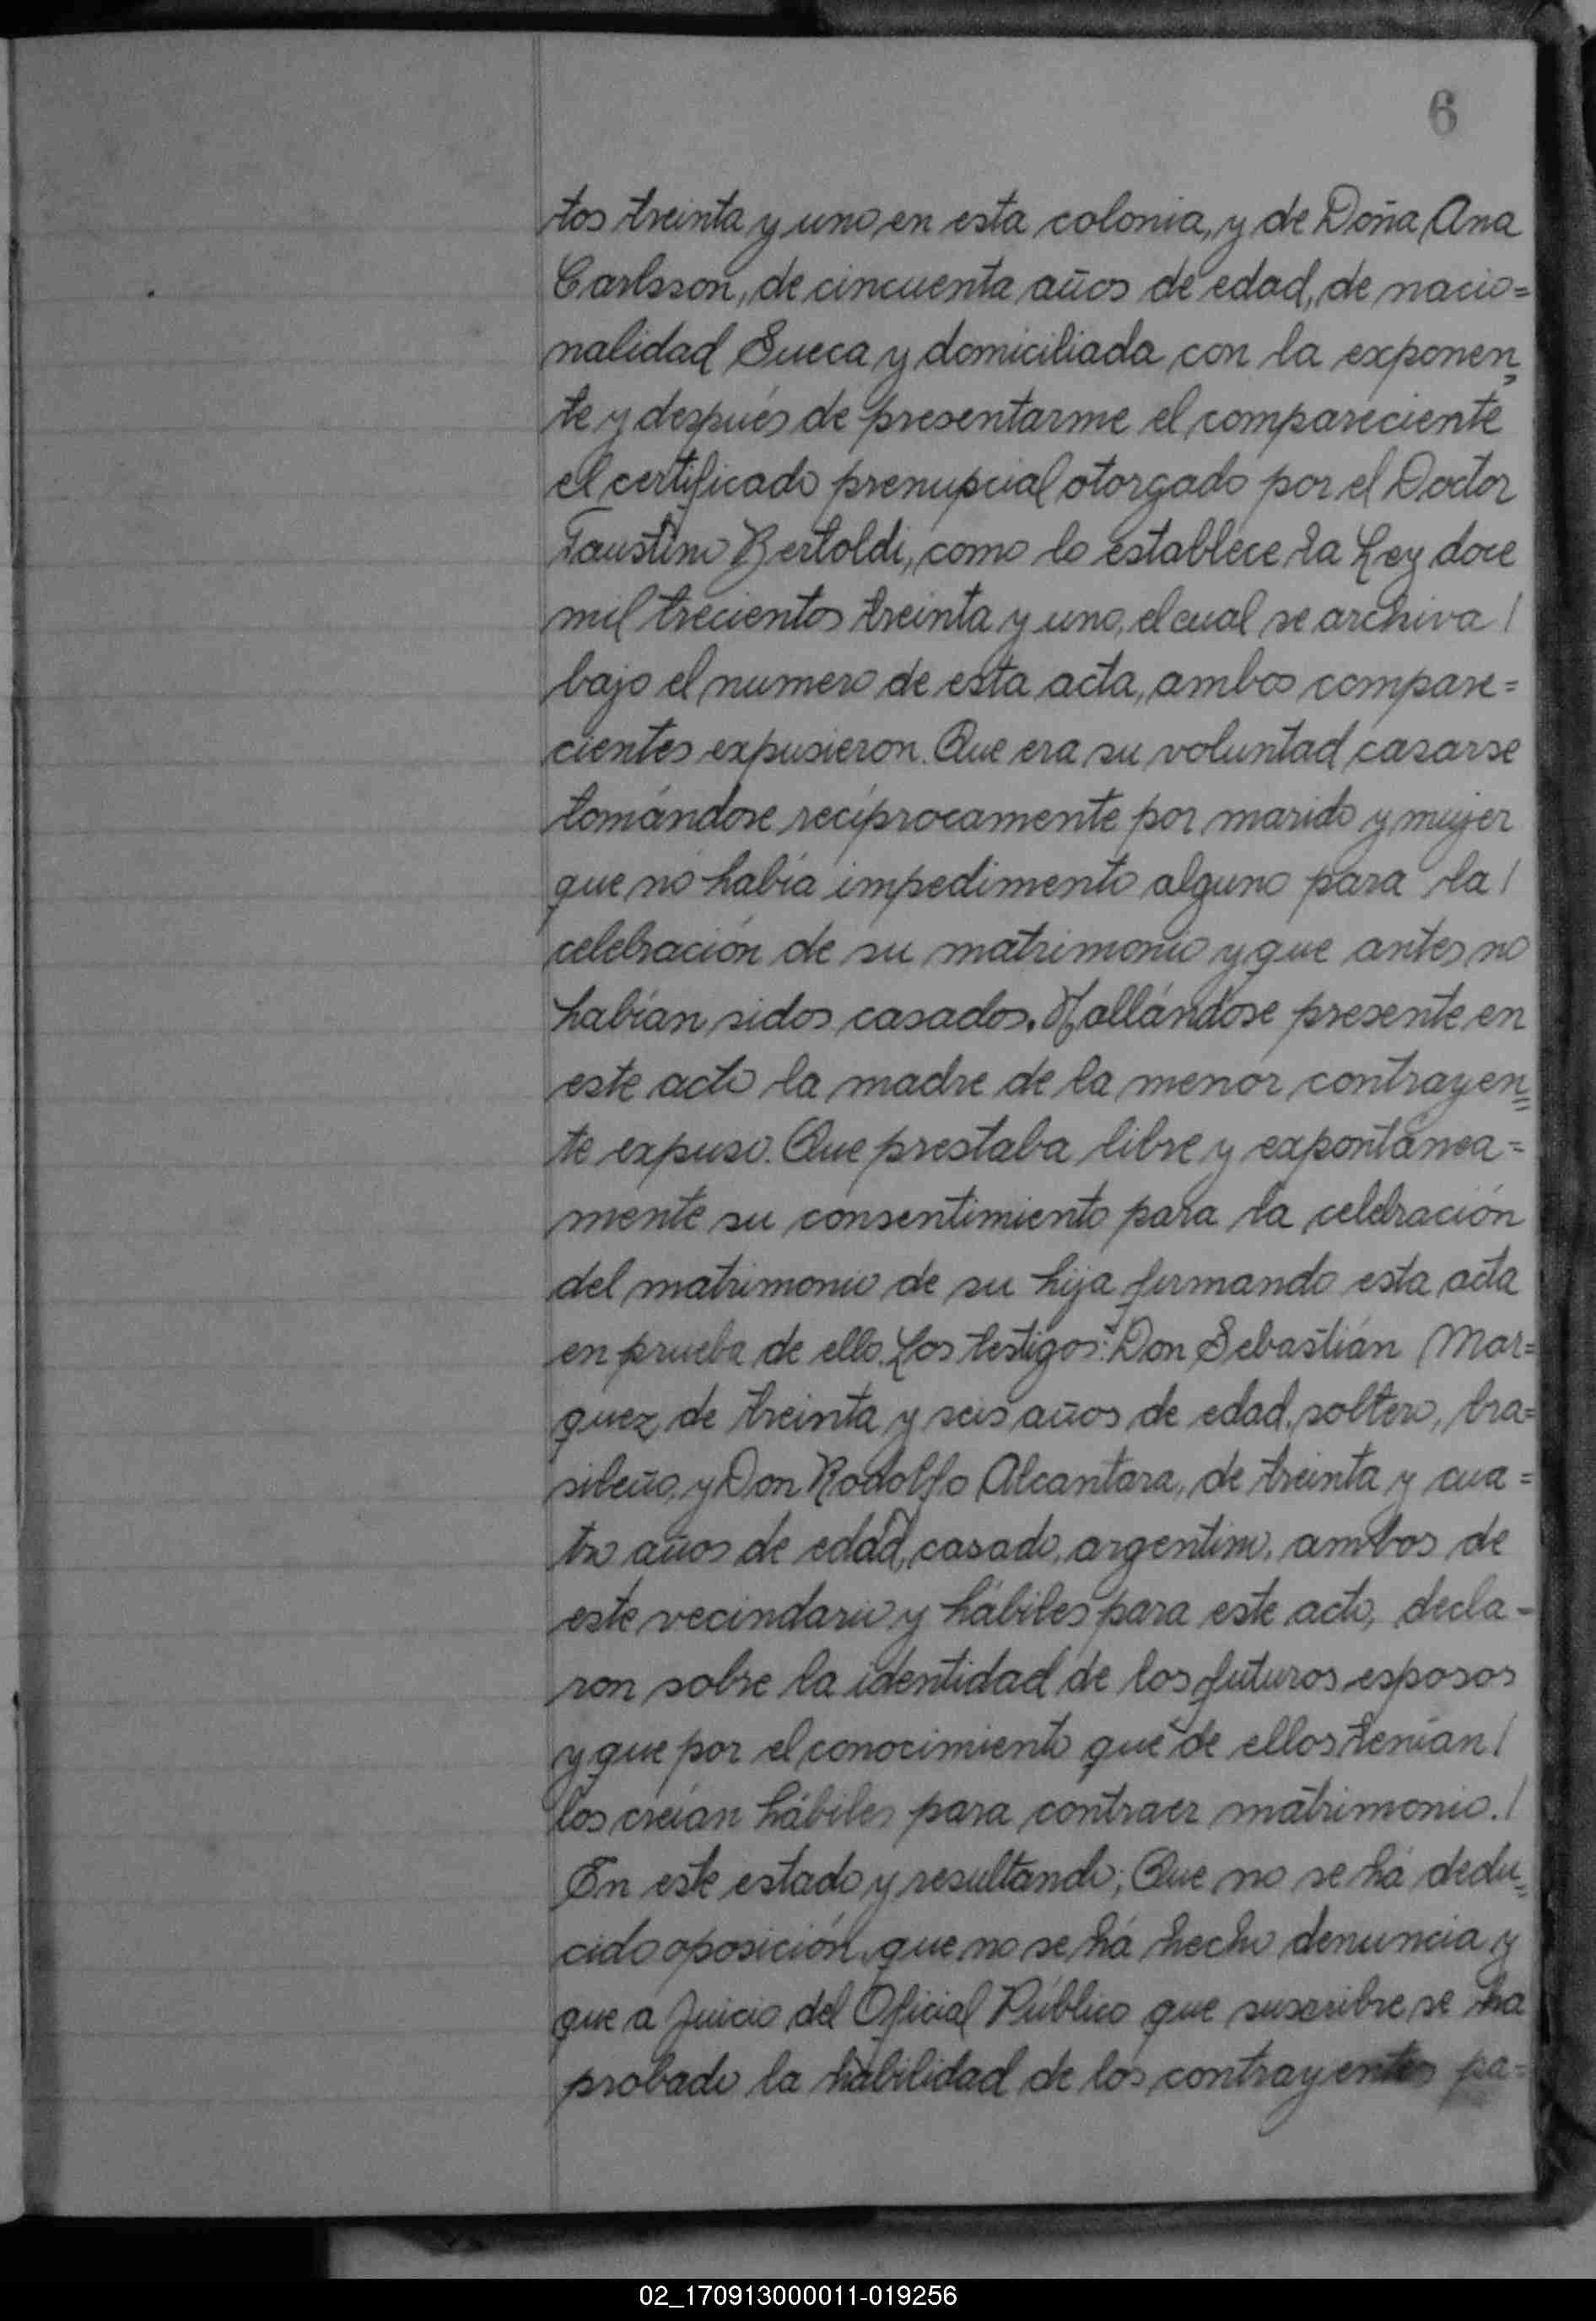 6
tos treinta y uno en esta colonia, y de Doña Ana
Carlsson, de cincuenta años de edad, de nacio=
nalidad Sueca y domiciliada con la exponen=
te y después de presentarme el compareciente
el certificado prenupcial otorgado por el Doctor
Faustino Bertoldi, como lo establece la Ley doce
mil trecientos treinta y uno, el cual se archiva /
bajo el numero de esta acta, ambos compare=
cientes expusieron. Que era su voluntad casarse
tomándose recíprocamente por marido y mujer
que no había impedimento alguno para la /
celebración de su matrimonio y que antes no
habían sidos casados. Hallándose presente en
este acto la madre de la menor contrayen=
te expuso. Que prestaba libre y expontánea=
mente su consentimiento para la celebración
del matrimonio de su hija firmando esta acta
en prueba de ello. Los testigos: Don Sebastián Mar=
quez, de treinta y seis años de edad, soltero, bra=
sileño, y Don Rodolfo Alcantara, de treinta y cua=
tro años de edad, casado, argentino, ambos de
este vecindario y hábiles para este acto, decla-
ron sobre la identidad de los futuros esposos
y que por el conocimiento que de ellos tenían /
los creían hábiles para contraer matrimonio. /
En este estado y resultando; Que no se há dedu=
cido oposición, que no se há hecho denuncia y
que a Juicio del Oficial Público que suscribe se ha
probado la habilidad de los contrayentes pa=
02_170913000011-019256